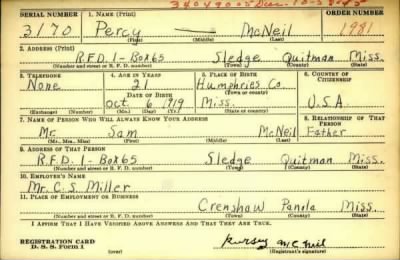 SERIAL NUMBER 1. NAME (Print) ORDER NUMBER
3170 Percy — McNeil 1981
(First) (Middle) (Last)
2. ADDRESS (Print)
R.F.D. 1 - Box 65 Sledge Quitman Miss.
(Number and street or R. F. D. number) (Town) (County) (State)
3. TELEPHONE 4. AGE IN YEARS 5. PLACE OF BIRTH 6. COUNTRY OF CITIZENSHIP
None 21 Humphries Co.
DATE OF BIRTH (Town or county)
Oct 6 1919 Miss. U.S.A.
(Exchange) (Number) (Mo.) (Day) (Yr.) (State or country)
7. NAME OF PERSON WHO WILL ALWAYS KNOW YOUR ADDRESS 8. RELATIONSHIP OF THAT PERSON
Mr. Sam McNeil Father
(Mr., Mrs., Miss) (First) (Middle) (Last)
9. ADDRESS OF THAT PERSON
R.F.D. 1 - Box 65 Sledge Quitman Miss.
(Number and street or R. F. D. number) (Town) (County) (State)
10. EMPLOYER'S NAME
Mr. C. S. Miller
11. PLACE OF EMPLOYMENT OR BUSINESS
Crenshaw Panola Miss.
(Number and street or R. F. D. number) (Town) (County) (State)
I AFFIRM THAT I HAVE VERIFIED ABOVE ANSWERS AND THAT THEY ARE TRUE.
REGISTRATION CARD
D. S. S. FORM 1 (over) (Registrant's signature)